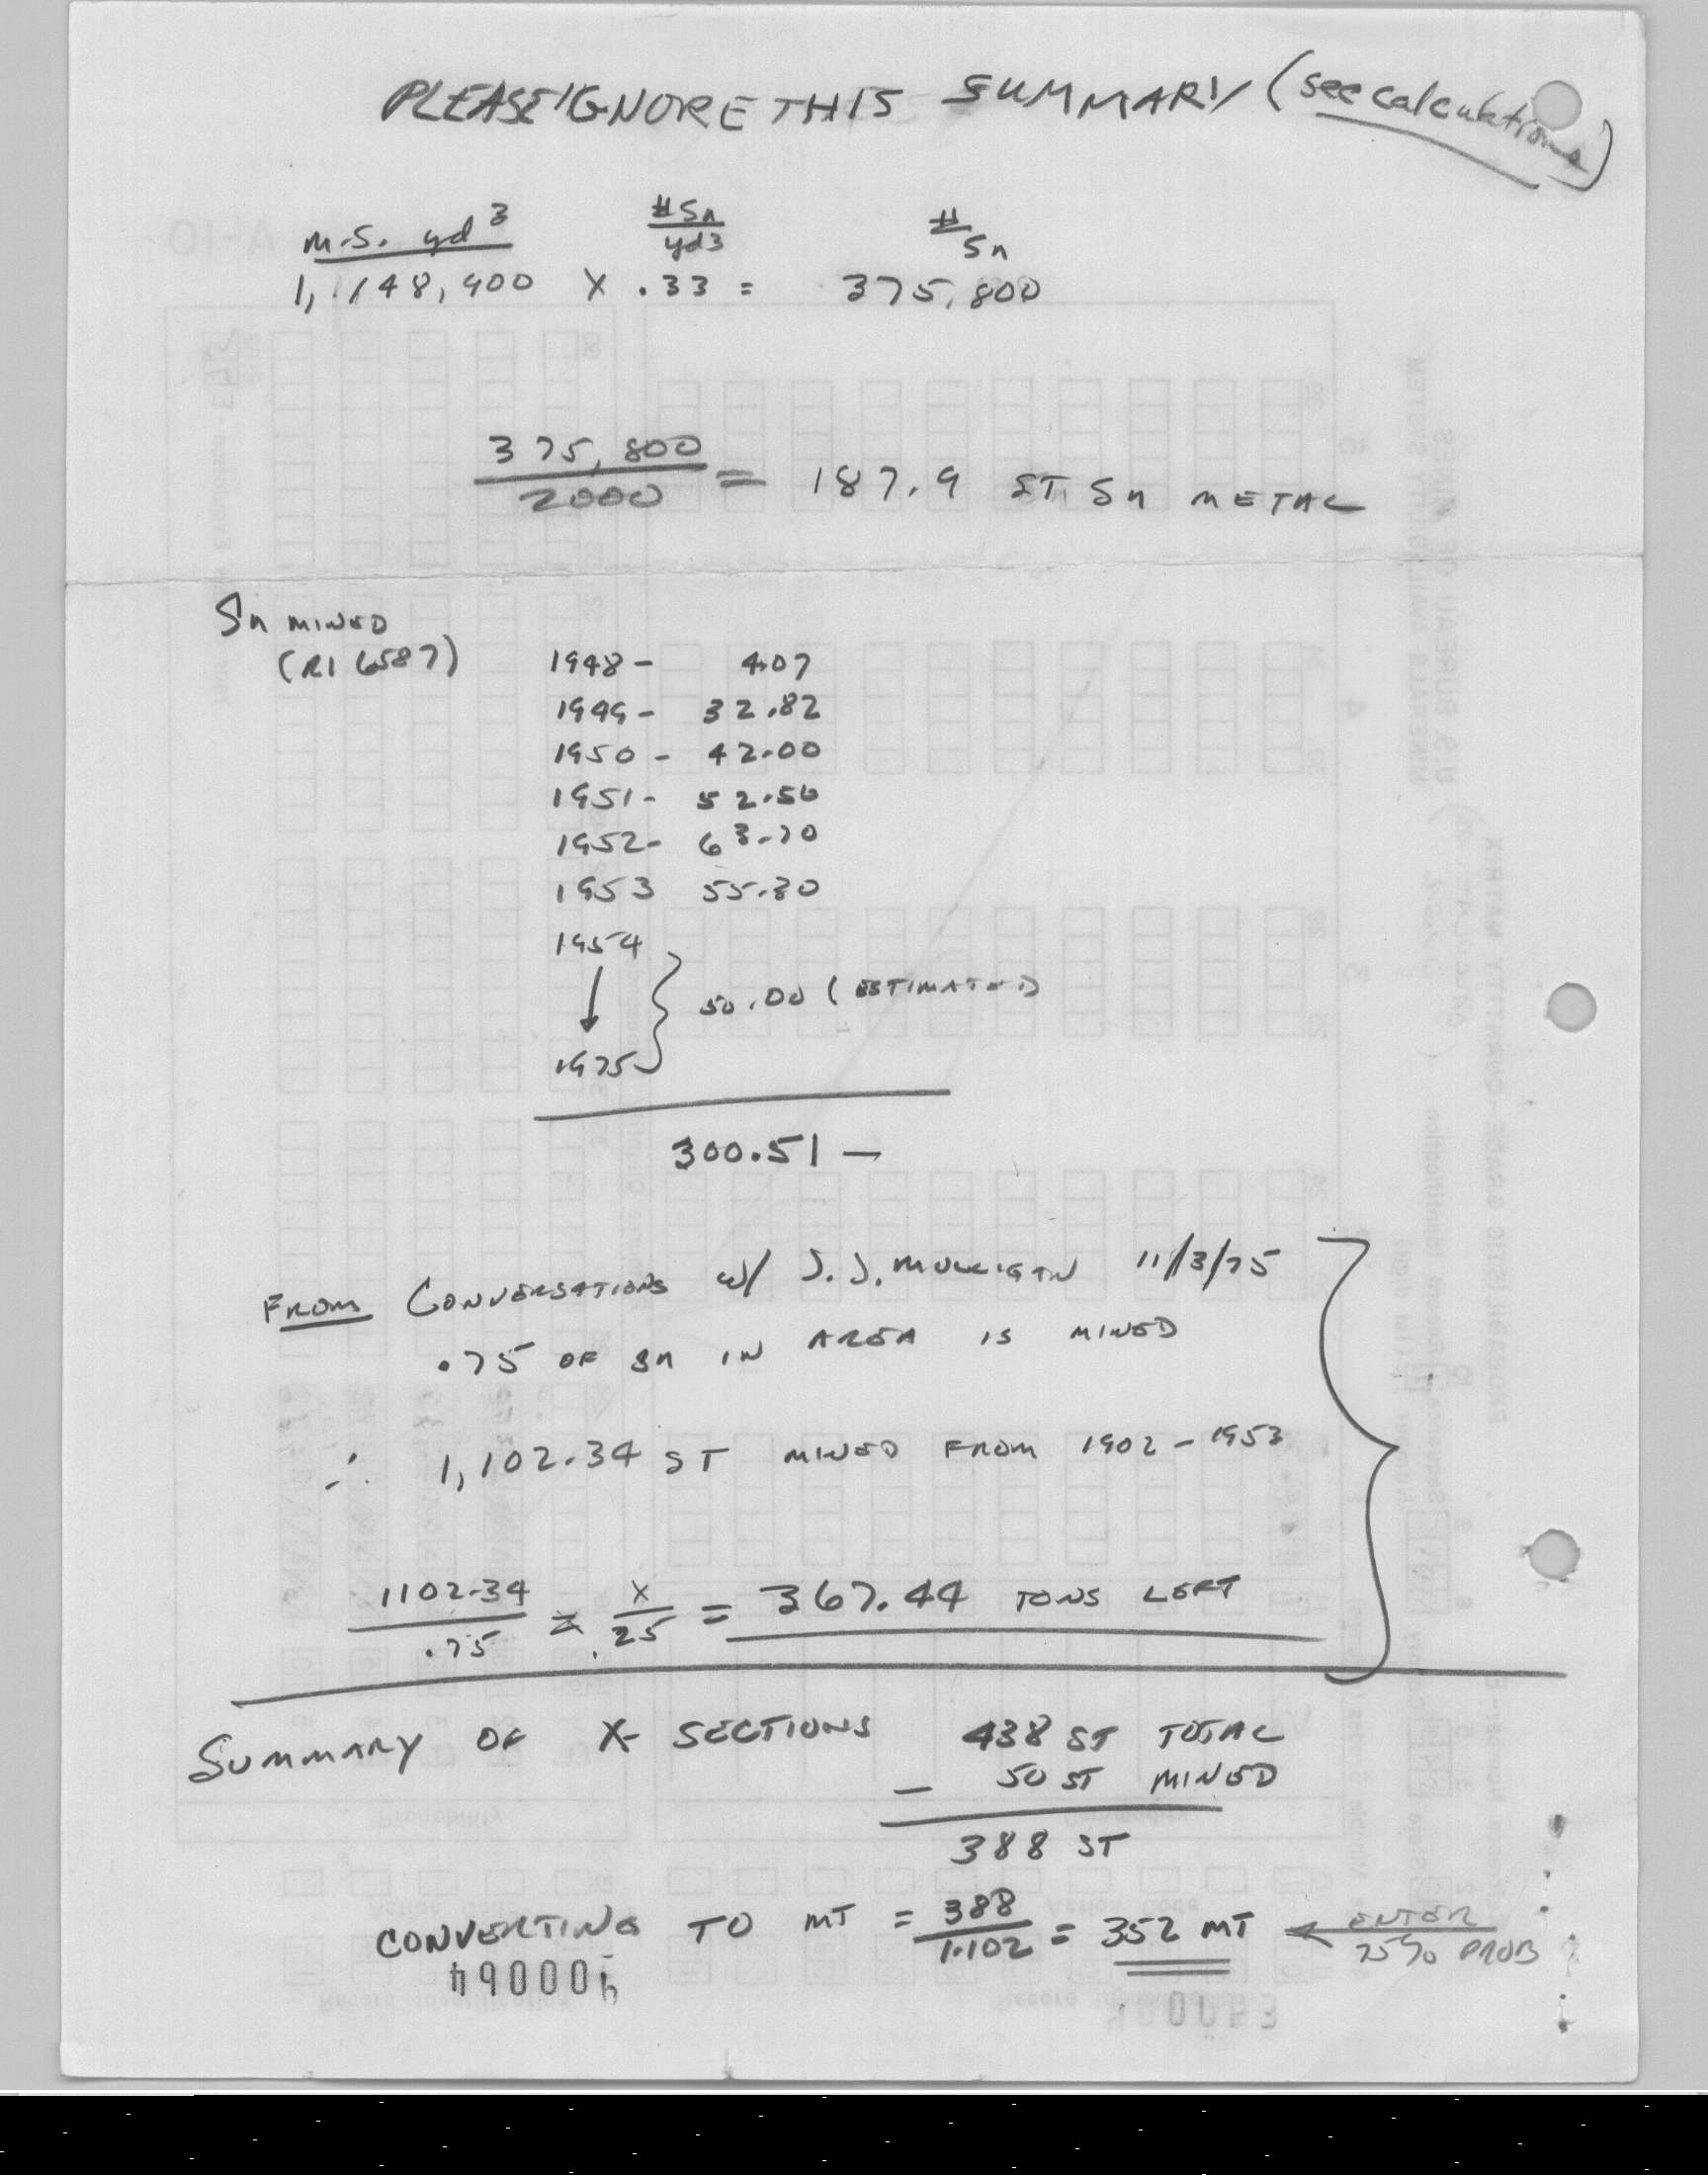 PLEASE IGNORE THIS SUMMARY (see calculations)
M.S. yd3 #Sn/yd3 # Sn
1,148,400 X .33 = 375,800
375,800/2000 = 187.9 ST Sn METAL
Sn MINED
(RI 6587) 1948 - 4.07
1949 - 32.82
1950 - 42.00
1951 - 52.50
1952 - 63.70
1953 55.30
1954
↓ } 50.00 (ESTIMATED)
1975
300.51 —
FROM CONVERSATIONS w/ J.J. MULLIGAN 11/3/75
.75 OF Sn IN AREA IS MINED
∴ 1,102.34 ST MINED FROM 1902 - 1953
1102.34/.75 = X/.25 = 367.44 TONS LEFT
SUMMARY OF X-SECTIONS 438 ST TOTAL
- 50 ST MINED
388 ST
CONVERTING TO MT = 388/1.102 = 352 MT ← ENTER 75% PROB